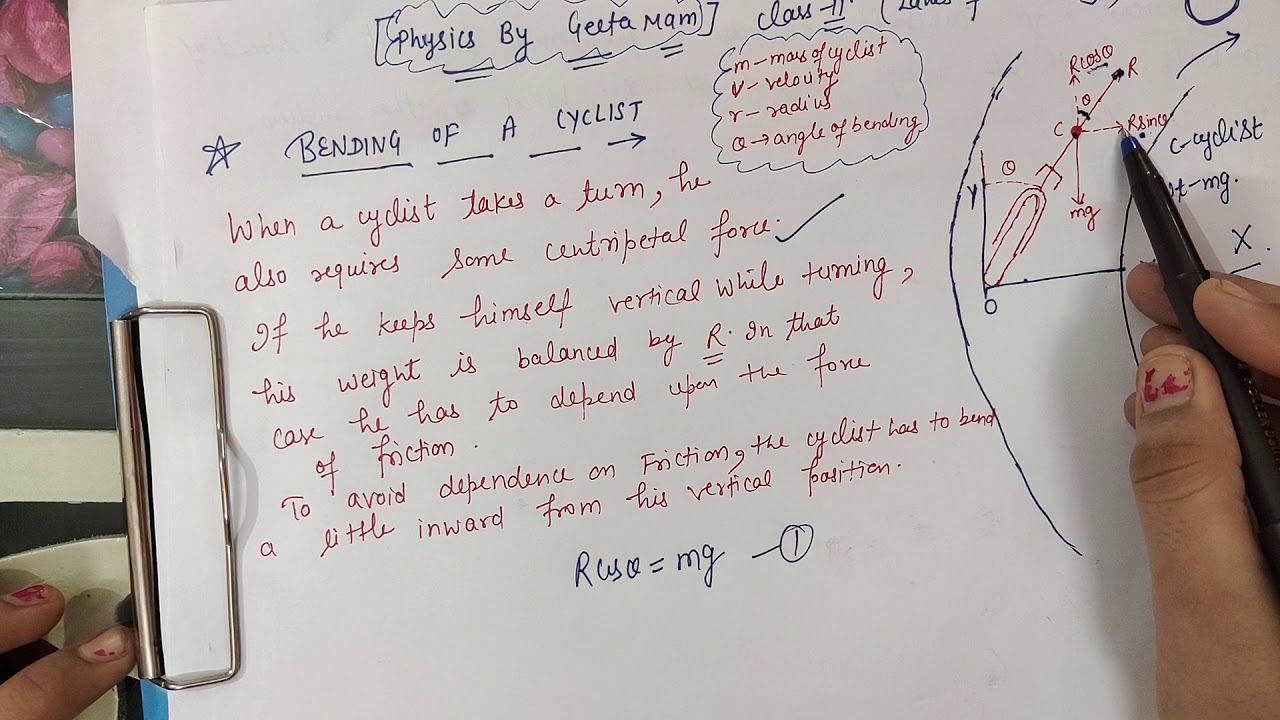 [Physics By Geeta Mam] Class-11
m - mass of cyclist
v - velouty
r - radius
θ → angle of bending
☆ BENDING OF A CYCLIST →
When a cyclist takes a turn, he
also requires some centripetal force.
If he keeps himself vertical while turning,
his weight is balanced by R. In that
case he has to depend upon the force
of friction.
To avoid dependence on Friction, the cyclist has to bend
a little inward from his vertical position.
Rcosθ = mg —①
Rcosθ
R
θ
C
Rsinθ
θ
Y
mg
O
C-cyclist
wt-mg.
X